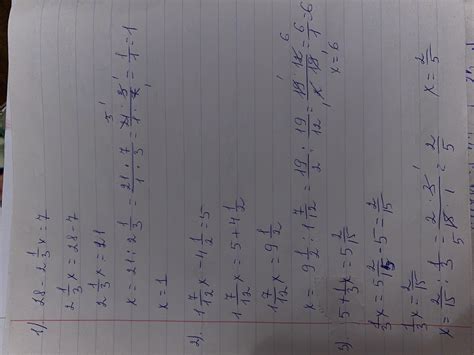 1) 28 - 2 1/3 x = 7
2 1/3 x = 28 - 7
2 1/3 x = 21
x = 21 : 2 1/3 = 21/1 : 7/3 = (21 · 3)/(1 · 7) = 1/1 = 1
x = 1
2) 1 7/12 x - 4 1/2 = 5
1 7/12 x = 5 + 4 1/2
1 7/12 x = 9 1/2
x = 9 1/2 : 1 7/12 = 19/2 : 19/12 = (19 · 12)/(2 · 19) = 6/1 = 6
x = 6
3) 5 + 1/3 x = 5 2/15
1/3 x = 5 2/15 - 5 = 2/15
1/3 x = 2/15
x = 2/15 : 1/3 = (2 · 3)/(15 · 1) = 2/5 x = 2/5